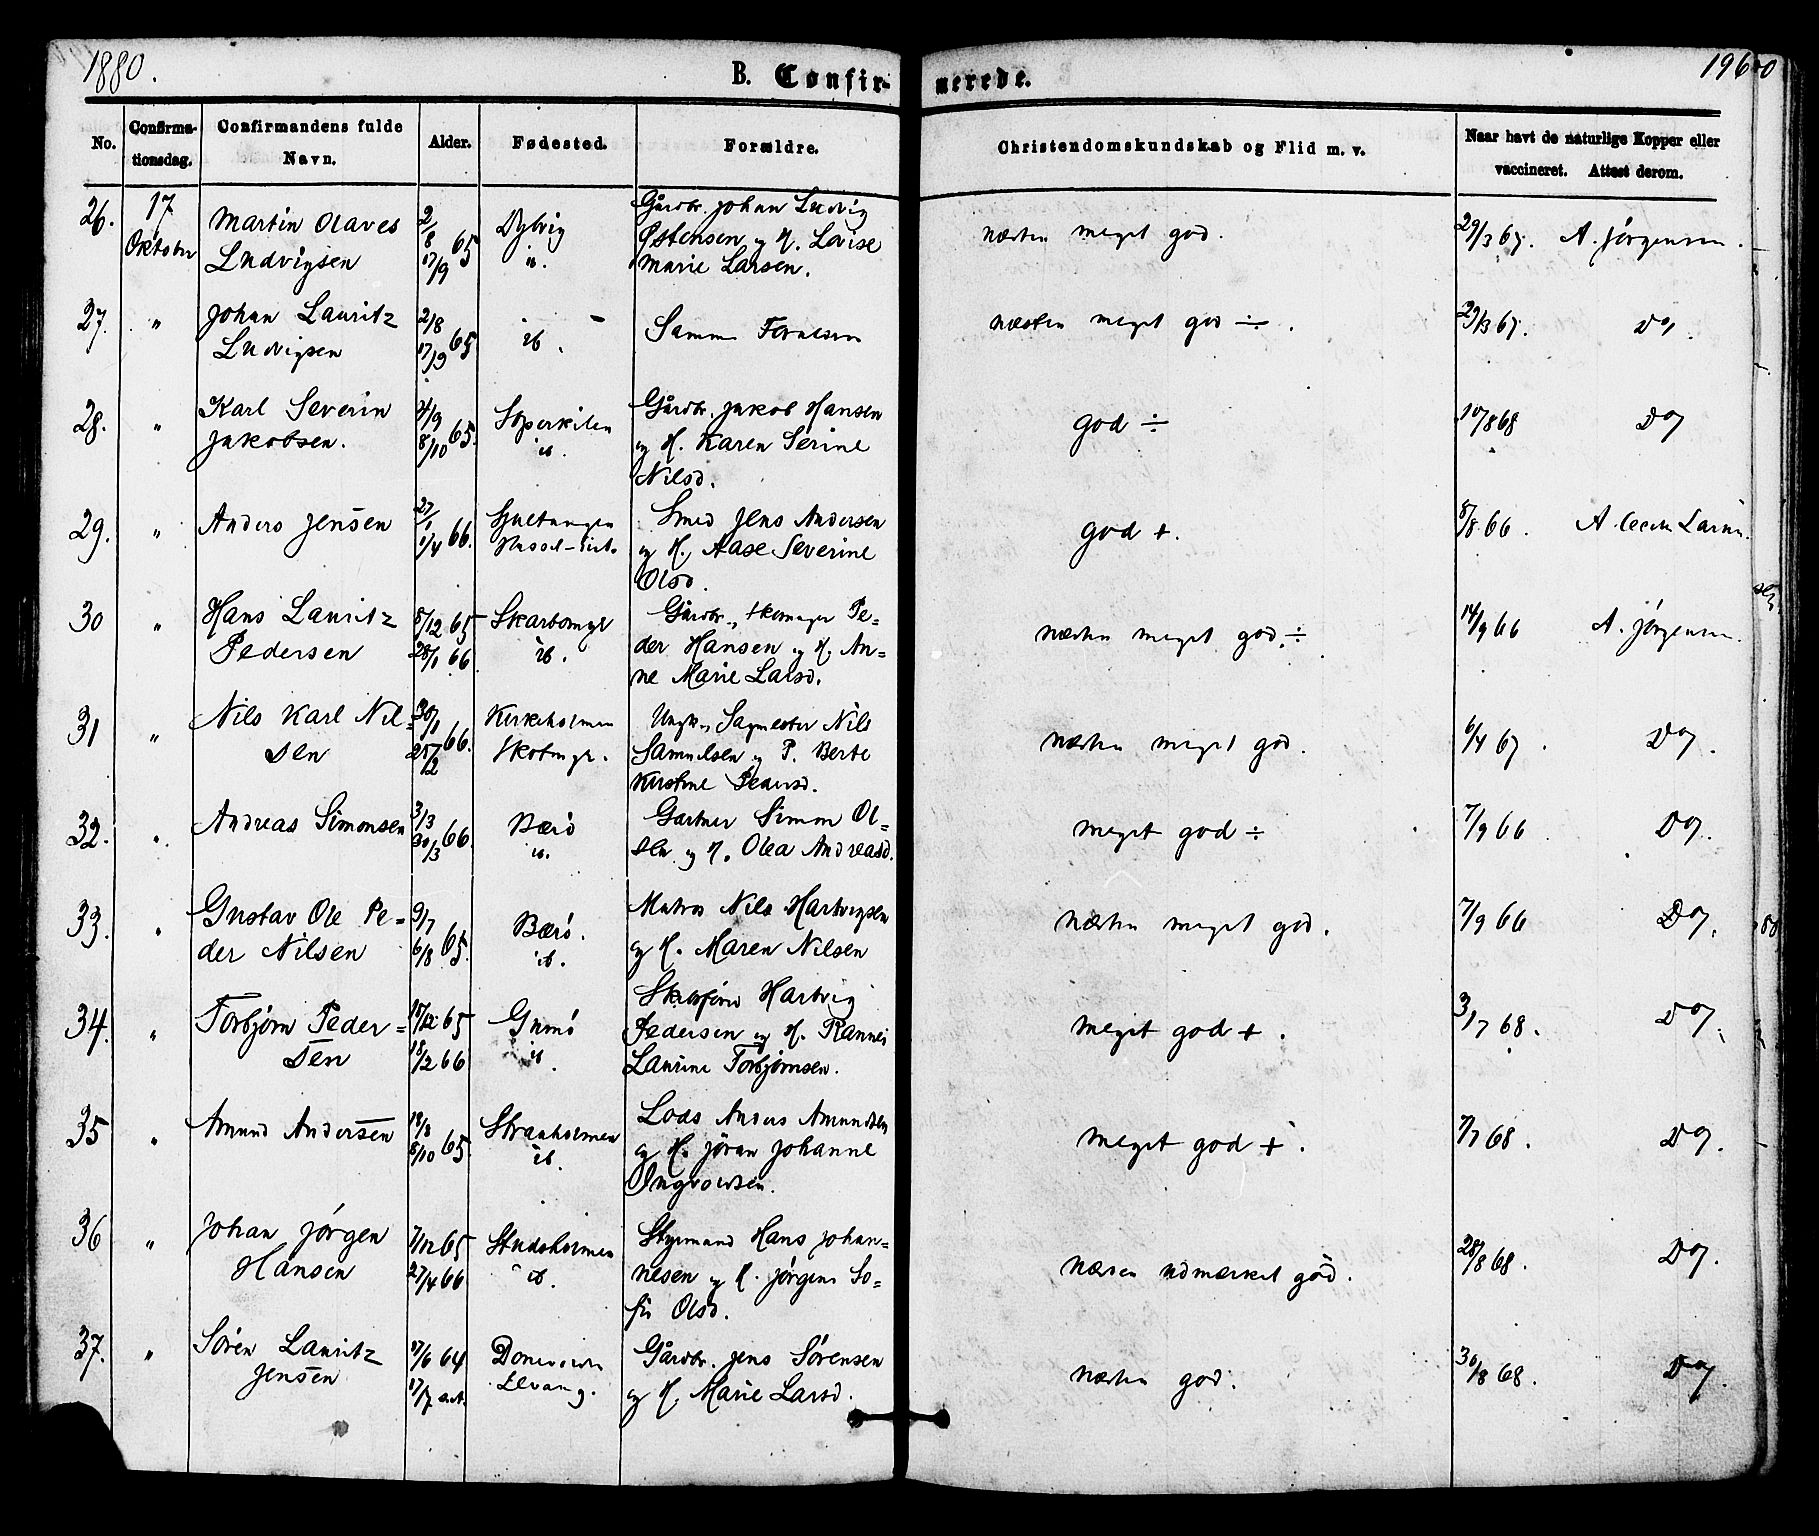 1880.
B. Confirmerede.
196
No.
Confirmationsdag.
Confirmandens fulde Navn.
Alder.
Fødested.
Forældre.
Christendomskundskab og Flid m. v.
Naar havt de naturlige Kopper eller vaccineret. Attest derom.
26. 17 Oktober
Martin Olaves
Ludvigsen
2/8 65
17/9
Dybvig
ib.
Gårdbr. Johan Ludvig
Østensen og H. Lovise
Marie Larsen.
næsten meget god.
29/3 67. A. Jörgensen.
27. "
Johan Lauritz
Ludvigsen
2/8 65
17/9
ib.
Samme
næsten meget god ÷.
29/3 67. Do.
28. "
Karl Severin
Jakobsen.
4/9 65.
8/10
ib.
Gårdbr. Jakob Hansen
og H. Karen Serine
Nilsd.
god ÷
10/8 68 Do
29. "
Anders Jensen
27/1 66.
1/4
Smed Jens Andersen
og H. Aase Severine
Olsd.
god +.
8/8 66. A.
30 "
Hans Lauritz
Pedersen
8/12 65
28/1 66.
ib.
Gårdbr., Pe=
der Hansen og H. An=
ne Marie Larsd.
næsten meget god. ÷
14/9 66 A. Jörgensen.
31 "
Nils Karl Nil=
sen
30/1 66.
Kirkeholmen
Ungk., Nils
Samuelsen og P. Berte
Kirstine Pedersd.
næsten meget god.
6/4 67. Do.
32. "
Andreas Simonsen
3/3 66.
30/3
Bærö
ib.
Gartner Simon Ol=
sen og H. Olea Andreasd.
meget god ÷
7/9 66 Do.
33. "
Gustav Ole Pe=
der Nilsen
9/7 65.
6/8
Bærö.
ib.
Matros Nils Hartvigsen
og H. Maren Nilsen
næsten meget god.
7/9 66 Do.
34. "
Torbjörn Peder=
sen
15/12 65
18/2 66
ib.
Hartvig
Pedersen og H.
Laurine Torbjörnsen.
meget god +.
3/7 68. Do.
35 "
Amund Andersen
18/8 65.
8/10
ib.
Lods Anders Amundsen
og H. Jöran Johanne
meget god +.
7/7 68. Do.
36 "
Johan Jörgen
Hansen
7/12 65
27/4 66
Studsholmen
ib.
Styrmand Hans Johan=
nesen og H. Jörgine So=
fie Olsd.
næsten udmærket god.
28/8 68. Do.
37. "
Sören Lauritz
Jensen
17/6 64
17/7 s.A.
Gårdbr. Jens Sörensen
og H. Marie Larsd.
næsten god.
30/8 68. Do.